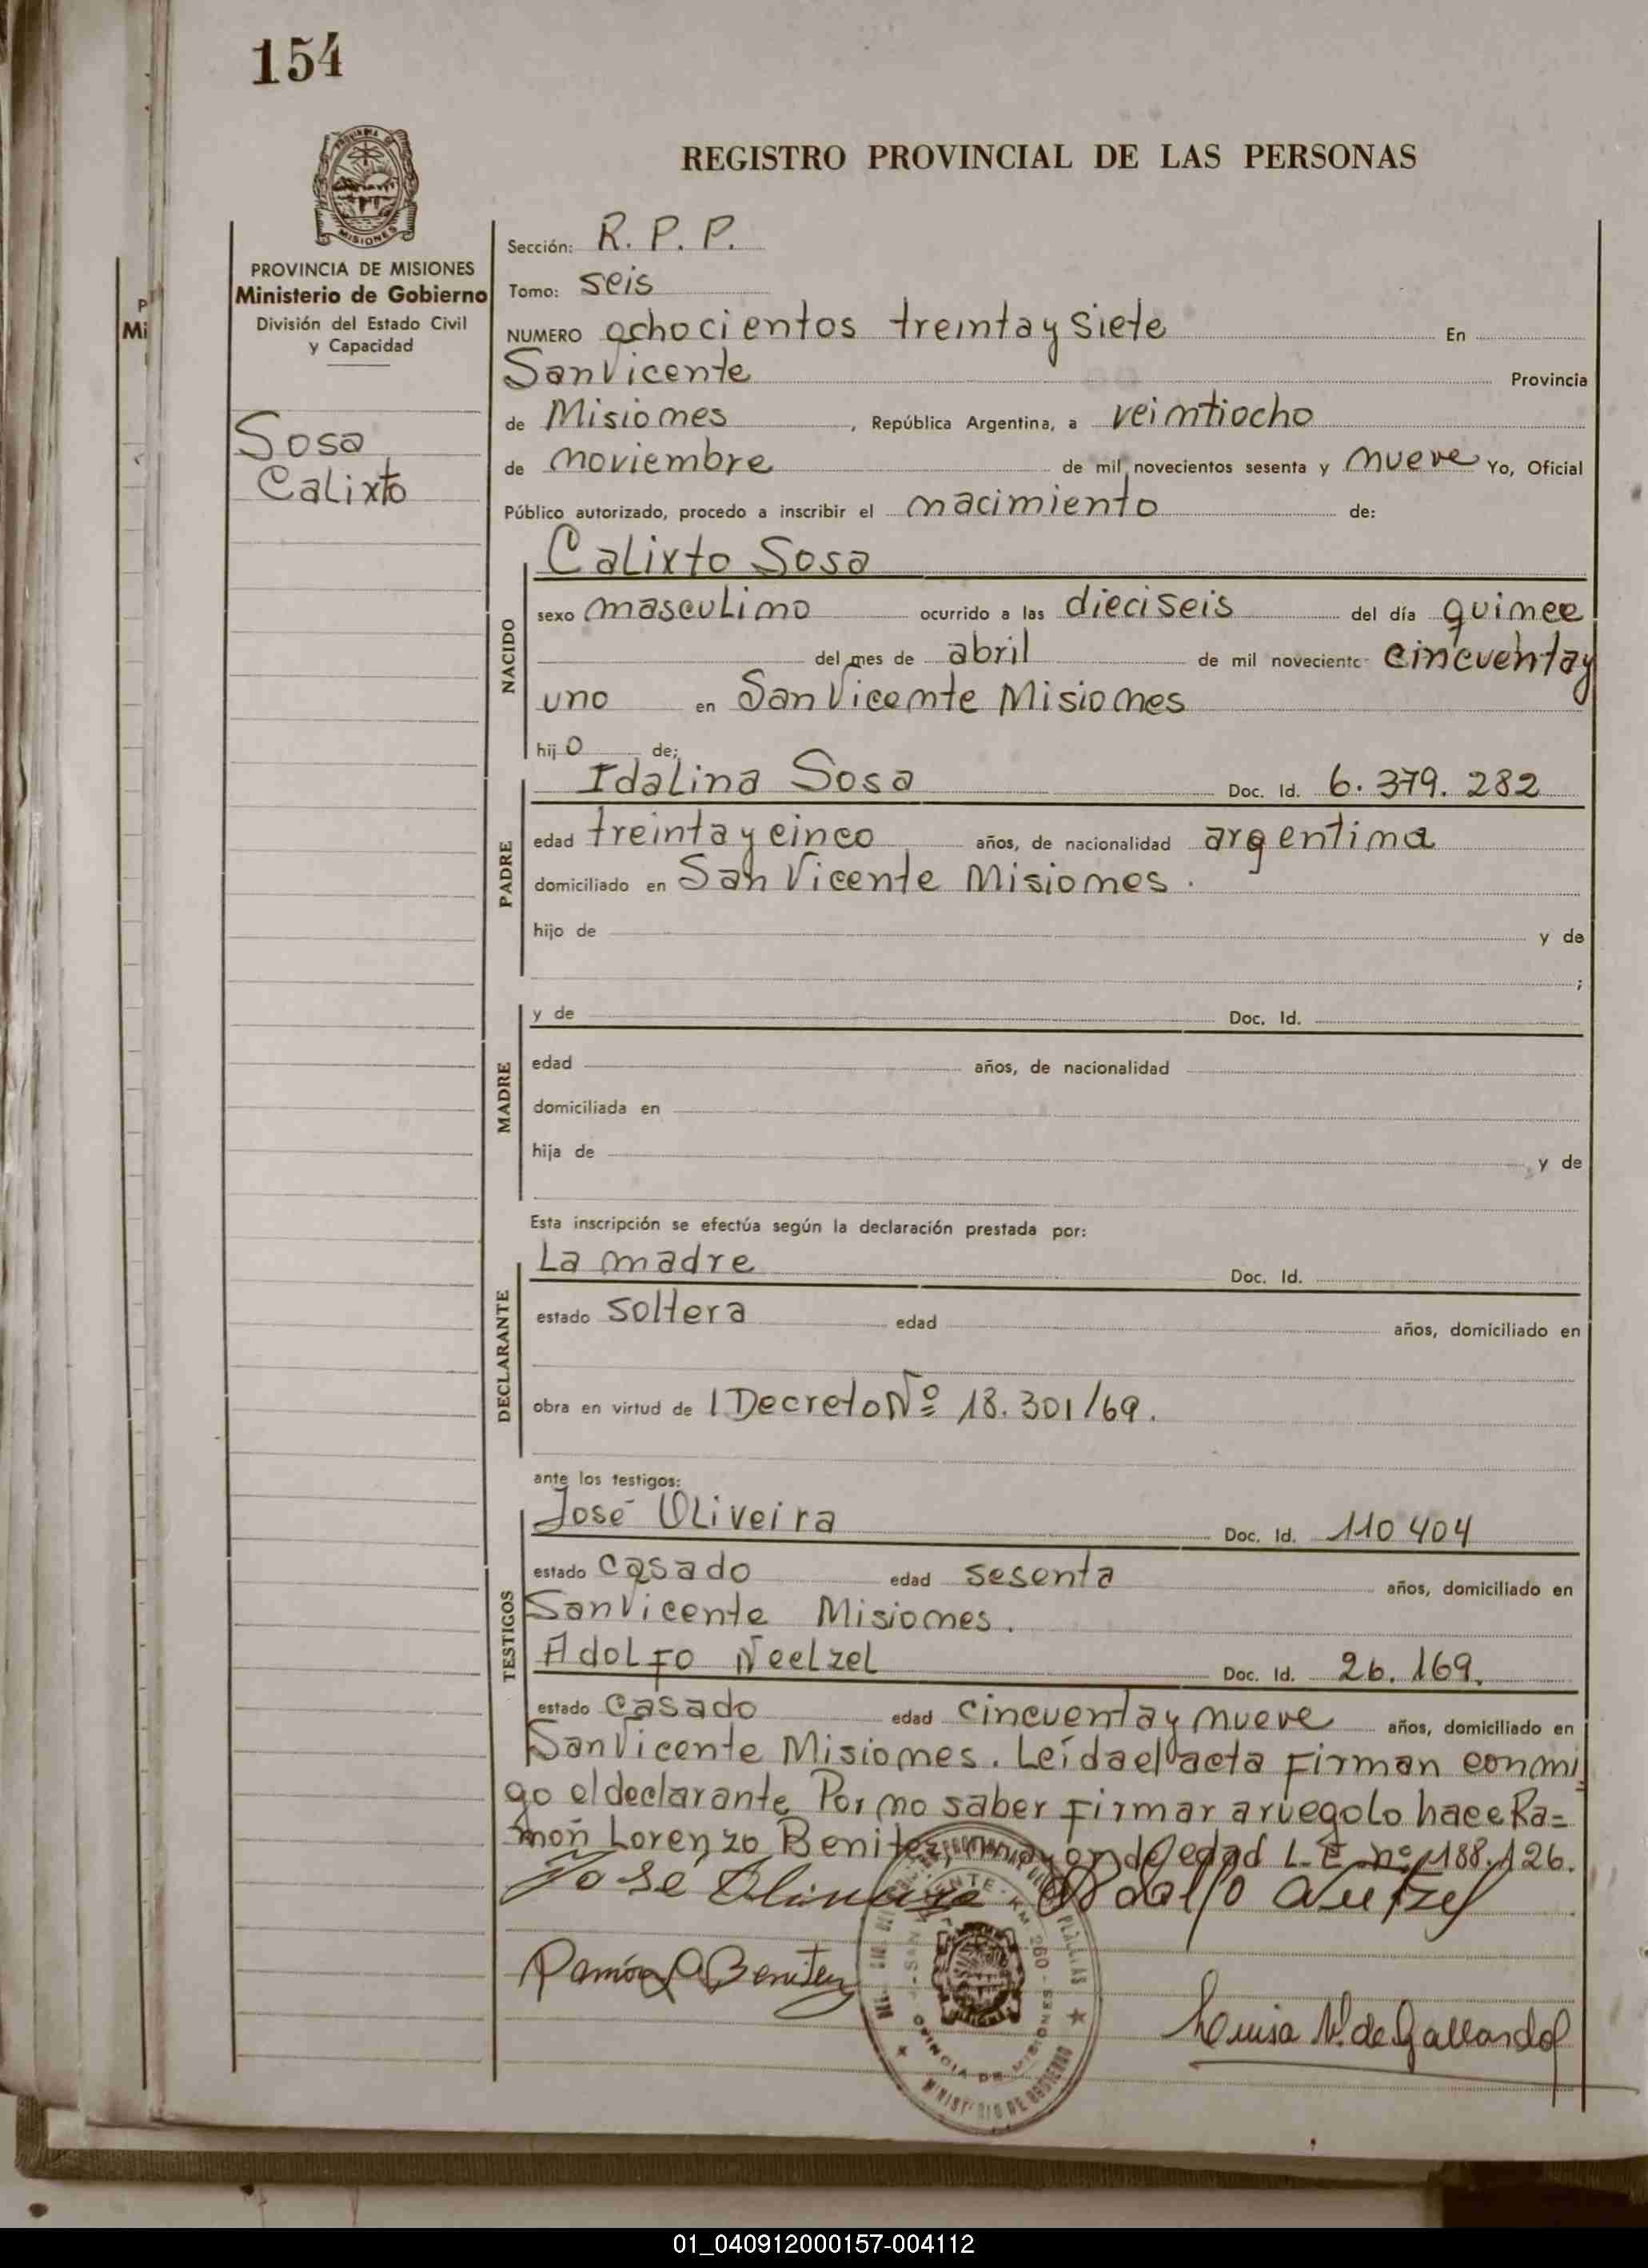 154
REGISTRO PROVINCIAL DE LAS PERSONAS
MISIONES
PROVINCIA DE MISIONES
Ministerio de Gobierno
División del Estado Civil
y Capacidad
Sosa
Calixto
P
Mi
Sección: R. P. P.
Tomo: seis
NUMERO ochocientos treinta y siete En
San Vicente Provincia
de Misiones, República Argentina, a veintiocho
de noviembre de mil novecientos sesenta y nueve Yo, Oficial
Público autorizado, procedo a inscribir el nacimiento de:
NACIDO
Calixto Sosa
sexo masculino ocurrido a las dieciseis del día quince
del mes de abril de mil noveciento cincuenta y
uno en San Vicente Misiones
hijo de;
PADRE
Idalina Sosa Doc. Id. 6.379.282
edad treinta y cinco años, de nacionalidad argentina
domiciliado en San Vicente Misiones.
hijo de y de
;
MADRE
y de Doc. Id.
edad años, de nacionalidad
domiciliada en
hija de y de
Esta inscripción se efectúa según la declaración prestada por:
DECLARANTE
La madre Doc. Id.
estado soltera edad años, domiciliado en
obra en virtud de l Decreto Nº 18.301/69.
ante los testigos:
TESTIGOS
José Oliveira Doc. Id. 110404
estado casado edad sesenta años, domiciliado en
San Vicente Misiones.
Adolfo Neelzel Doc. Id. 26.169.
estado casado edad cincuenta y nueve años, domiciliado en
San Vicente Misiones. Leída el acta firman conmi
go el declarante Por no saber firmar a ruego lo hace Ra=
món Lorenzo Benitez, mayor de edad L. E nº 188.126.
José Oliveira Adolfo Neutzel
Ramón L Benitez
Luisa N. de Gallardo
PROVINCIA DE MISIONES
MINISTERIO DE GOBIERNO
KM 260
01_040912000157-004112